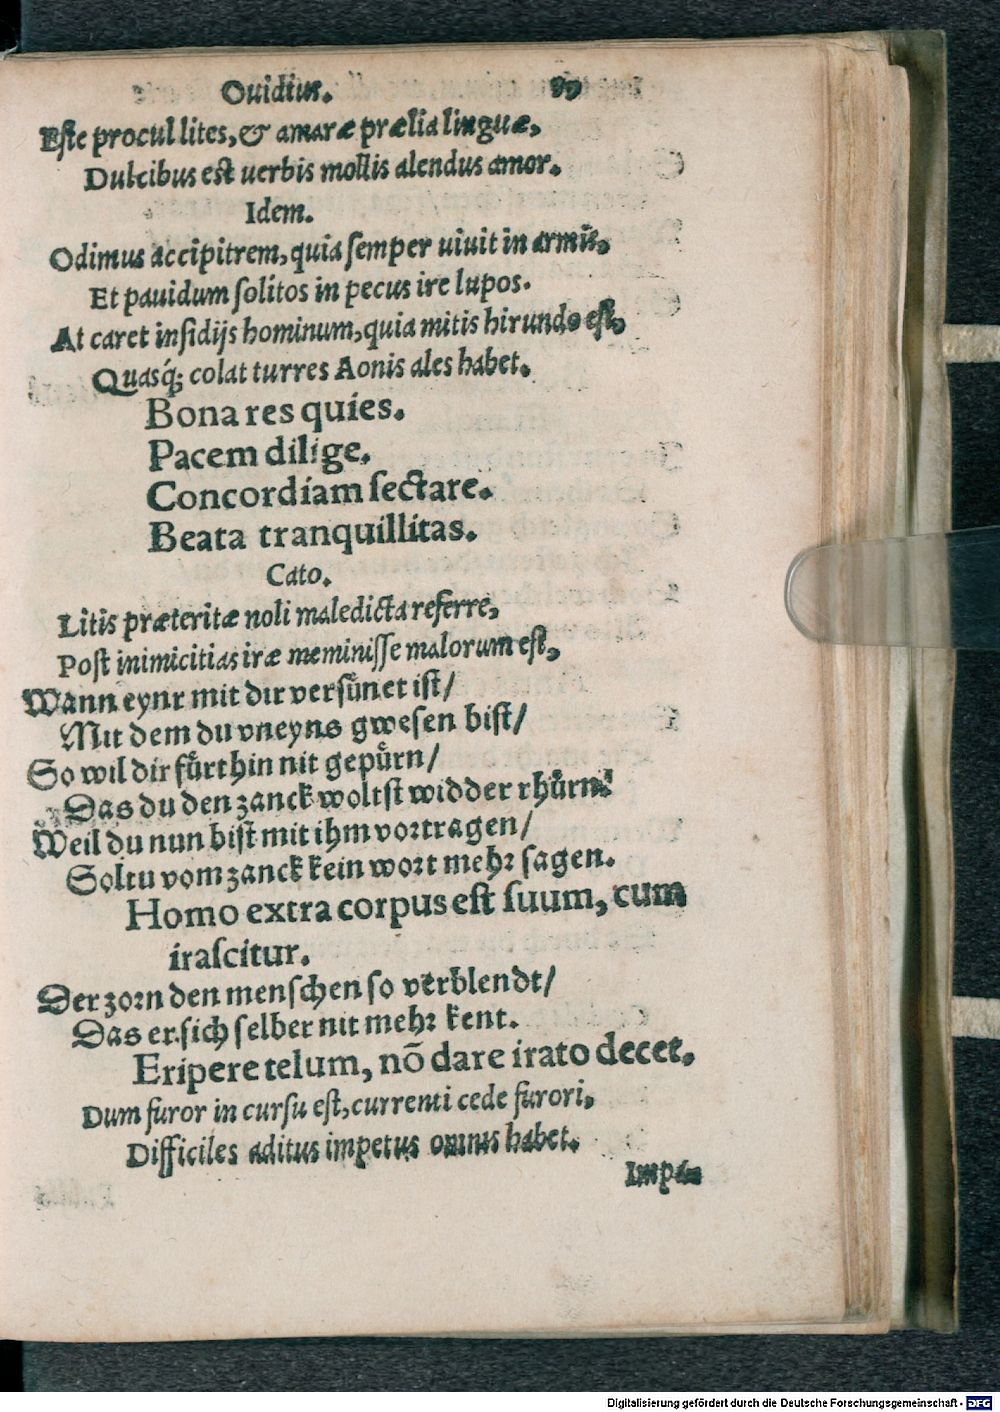 Ouidius. 99
Este procul lites, & amaræ prælia linguæ,
Dulcibus est uerbis mollis alendus amor.
Idem.
Odimus accipitrem, quia ſemper uiuit in armis,
Et pauidum ſolitos in pecus ire lupos.
At caret inſidijs hominum, quia mitis hirundo eſt,
Quasq́; colat turres Aonis ales habet.
Bona res quies.
Pacem dilige.
Concordiam ſectare.
Beata tranquillitas.
Cato.
Litis præteritæ noli maledicta referre,
Poſt inimicitias iræ meminiſſe malorum eſt,
Wann eynr mit dir verſuͤnet iſt/
Mit dem du vneyns gweſen biſt/
So wil dir fuͤrthin nit gepuͤrn/
Das du den zanck woltſt widder rhuͤrn/
Weil du nun biſt mit ihm vortragen/
Soltu vom zanck kein wort mehr ſagen.
Homo extra corpus est ſuum, cum
iraſcitur.
Der zorn den menſchen ſo verblendt/
Das er ſich ſelber nit mehr kent.
Eripere telum, nõ dare irato decet.
Dum furor in curſu eſt, currenti cede furori,
Difficiles aditus impetus omnis habet.
Impe=
Digitalisierung gefördert durch die Deutsche Forschungsgemeinschaft - DFG